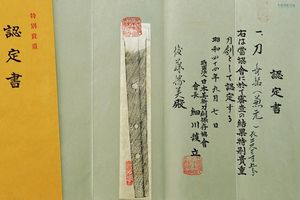 認定書
一、刀 無銘（兼元）
右は当協会に於て審査の結果特別貴重
刀剣として認定する
昭和四十四年九月七日
財団法人日本美術刀剣保存協会
会長 細川護立
後藤恵美殿
特別貴重
認定書